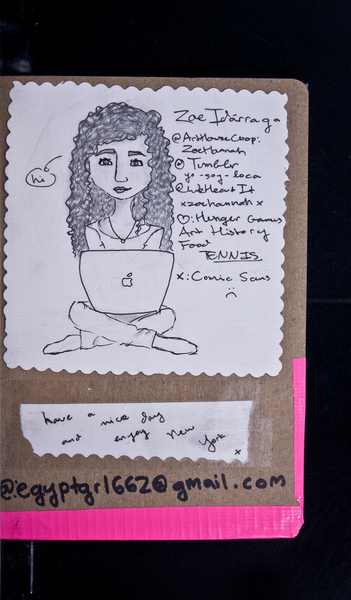 hi
Zoe Idárraga
@ArtHouseCoop:
ZoeHannah
@ Tumblr
yo-soy-loca
@WeHeartIt
xzoehannahx
♡: Hunger Games
Art History
Food
TENNIS
x: Comic Sans
:(
have a nice day
and enjoy New York
x
@egyptgrl662@gmail.com